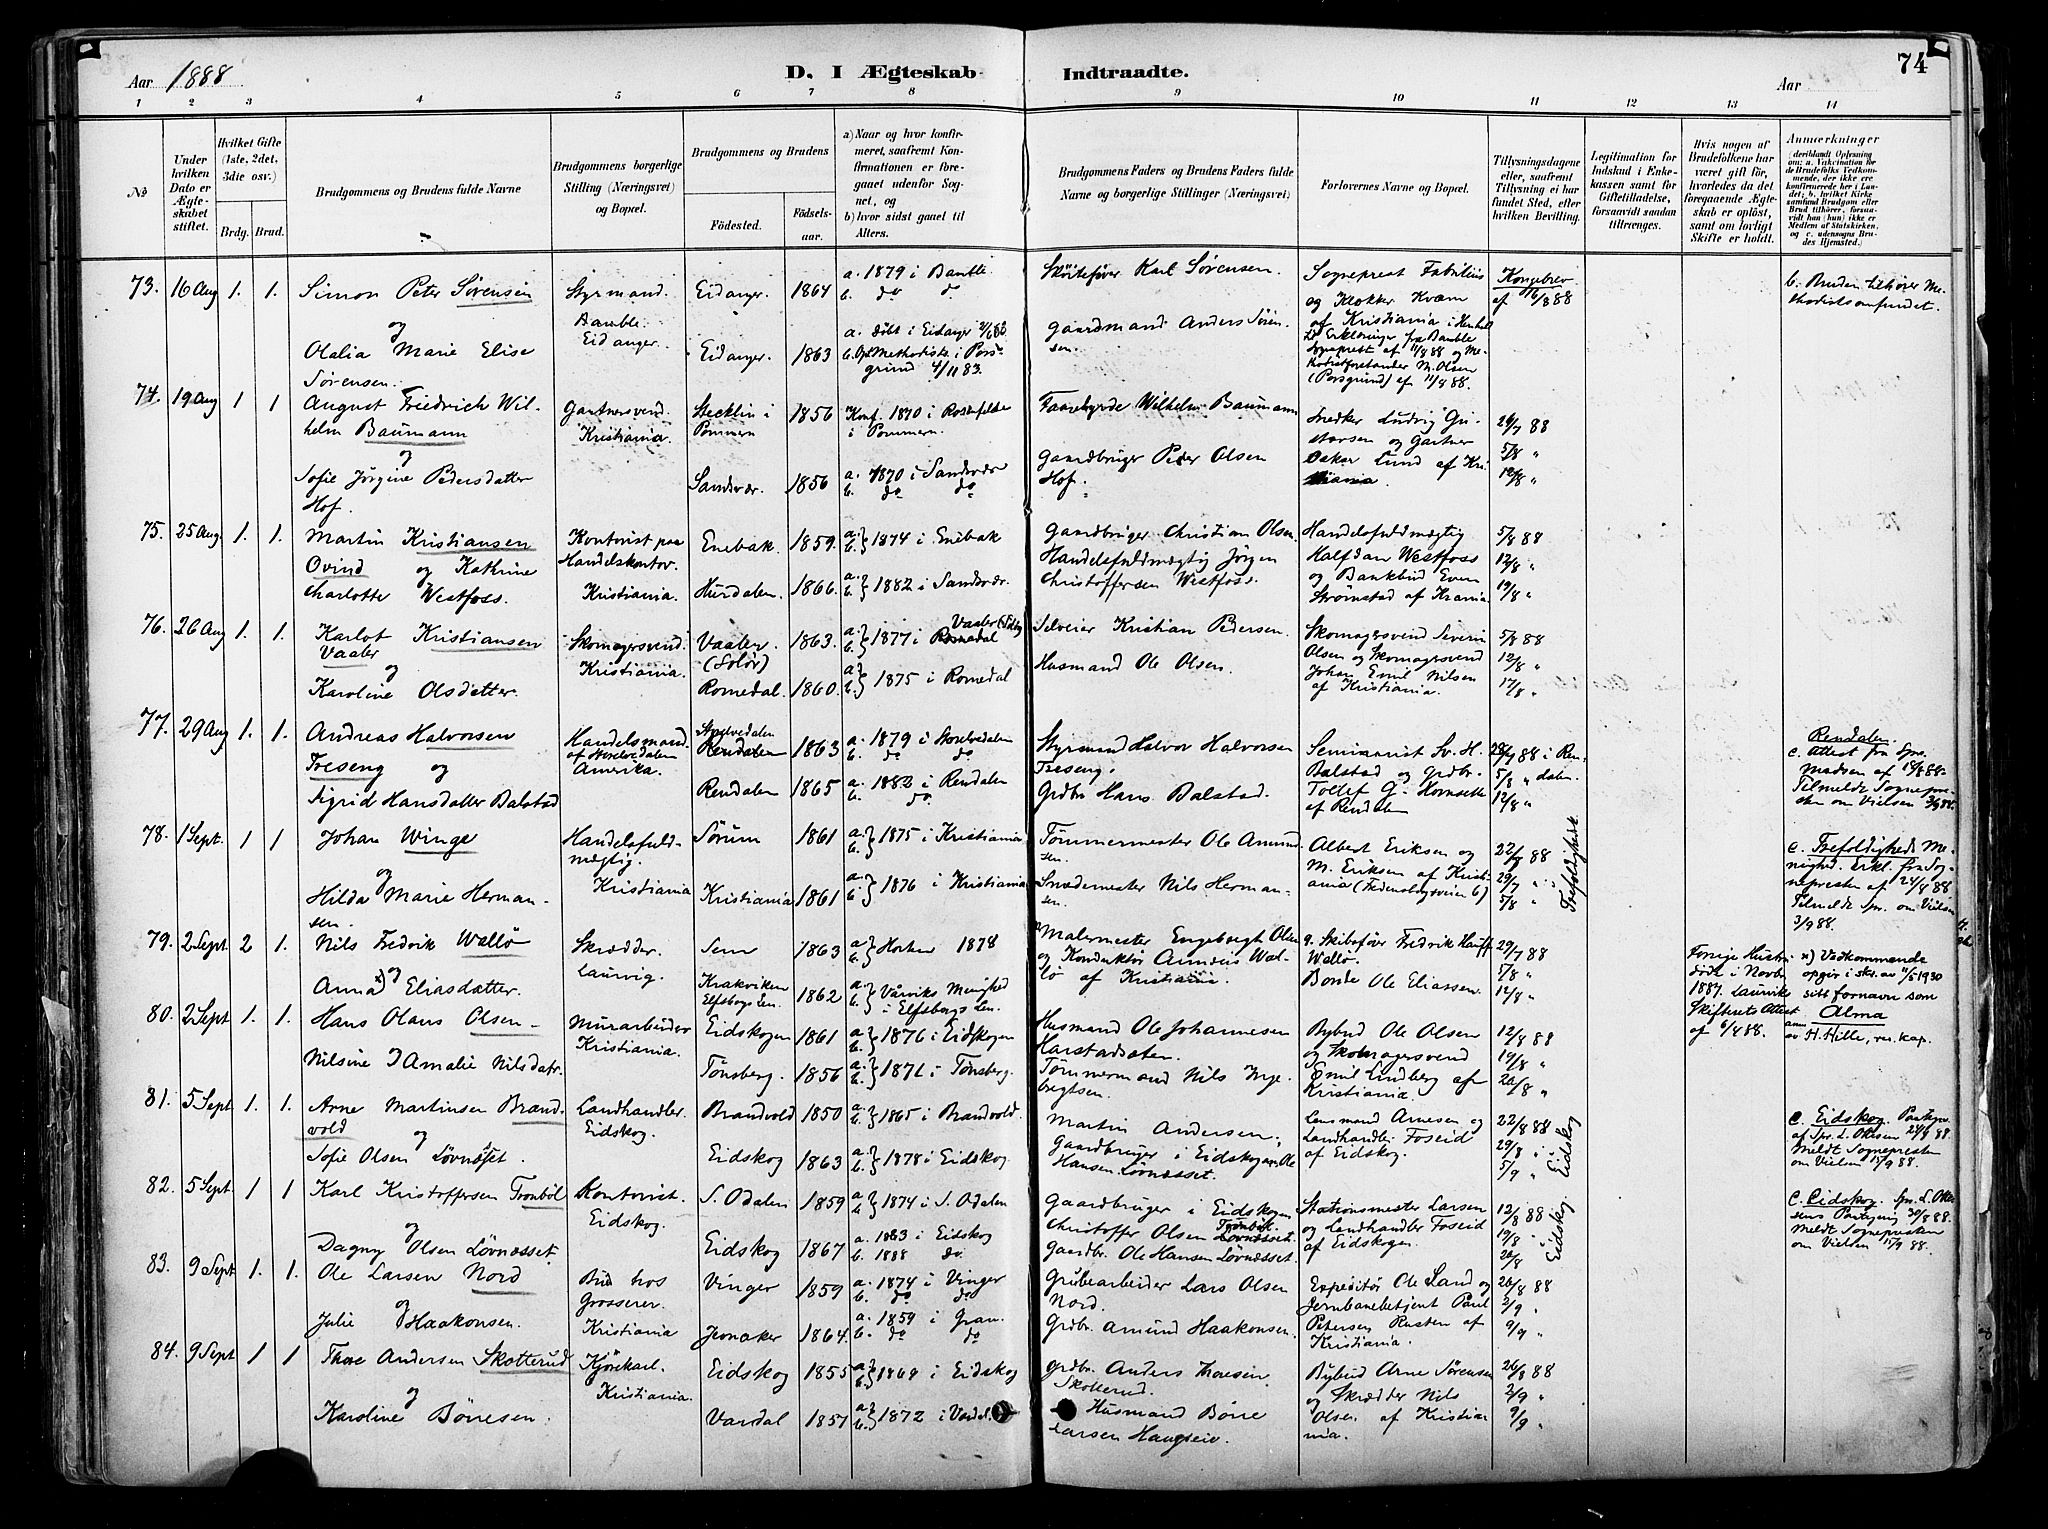 Aar 1888
D. I Ægteskab Indtraadte.
Aar
74
1 2 3 4 5 6 7 8 9 10 11 12 13 14
No
Under hvilken Dato er Ægteskabet stiftet.
Hvilket Gifte (1ste, 2det, 3die osv.)
Brdg. Brud.
Brudgommens og Brudens fulde Navne
Brudgommens borgerlige Stilling (Næringsvei) og Bopæl.
Brudgommens og Brudens
Fødested.
Fødselsaar.
a) Naar og hvor konfirmeret, saafremt Konfirmationen er foregaaet udenfor Sognet, og
b) hvor sidst gaaet til Alters.
Brudgommens Faders og Brudens Faders fulde Navne og borgerlige Stillinger (Næringsvei)
Forlovernes Navne og Bopæl.
Tillysningsdagene eller, saafremt Tillysning ei har fundet Sted, efter hvilken Bevilling.
Legitimation for Indskud i Enkekassen samt for Giftetilladelse, forsaavidt saadan tiltrænges.
Hvis nogen af Brudefolkene har været gift før, hvorledes da det foregaaende Ægteskab er opløst, samt om lovligt Skifte er holdt.
Anmerkninger
73. 16 Aug 1. 1. Simon Peter Sørensen
og
Olalia Marie Elise
Sørensen.
Styrmand.
Bamble.
Eidanger.
Eidanger. 1864 a. 1879 i Bamble
b. do do
Eidanger. 1863 a. døbt i Eidanger
Methodistk. i Porsgrund 4/11 83.
Skøitefører Karl Sørensen.
Gaardmand Anders Sørensen.
Sogneprest Fabritius
og Klokker Kværn
af Kristiania
Erklæringer fra Bamble
Sogneprest af 11/8 88 og Methodistforstander M. Olsen
(Porsgrund) af 11/8 88.
Kongebrev
af 16/8 88
b. Bruden tilhører Methodistsamfundet.
74. 19 Aug 1 1 August Friedrich Wilhelm Baumann
og
Sofie Jørgine Pedersdatter
Hof.
Gartnersvend.
Kristiania.
Stecklin i
Pommern 1856 Konf. 1870 i Rosenfelde
i Pommern.
Sandsvær. 1856 a. 1870 i Sandsvær
b. do do
Faarehyrde Wilhelm Baumann
Gaardbruger Peder Olsen
Hof.
Snedker Ludvig Gustavsen og Gartner
Oskar Lund af Kristiania.
29/7 88
5/8 "
12/8 "
75. 25 Aug 1. 1. Martin Kristiansen
Ovind og Kathrine
Charlotte Westfoss.
Kontorist paa
Handelskontor.
Kristiania.
Enebak. 1859. a. b. 1874 i Enebak
Hurdalen. 1866. a. b. 1882 i Sandsvær.
Gaardbruger Christian Olsen.
Handelsfuldmægtig Jørgen
Christoffersen Westfoss.
Handelsfuldmægtig
Halfdan Westfoss
og Bankbud Even
Strømstad af Krania.
5/8 88
12/8 "
19/8 "
76. 26 Aug 1. 1. Karlot Kristiansen
Vaaler
og
Karoline Olsdatter.
Skomagersvend.
Kristiania.
Vaaler
(Solør) 1863. a. b. 1877 i Vaaler (Solør)
Romedal. 1860. a. b. 1875 i Romedal
Selveier Kristian Pedersen.
Husmand Ole Olsen.
Skomagersvend Severin
Olsen og Skomagersvend
Johan Emil Nilsen
af Kristiania.
5/8 88
12/8 "
17/8 "
77. 29 Aug 1. 1. Andreas Halvorsen
Treseng og
Sigrid Hansdatter Balstad
Handelsmand.
af Storelvedalen
Amerika.
Rendalen 1863 a. 1879 i Storelvedalen
b. do do
Rendalen 1865 a. 1882 i Rendalen
b. do.
Styrmand Halvor Halvorsen
Treseng.
Grdbr. Hans Balstad.
Seminarist Sv. H.
Balstad og grdbr.
Tollef G. Hornsette
af Rendalen
29/7 88 i Rendalen.
5/8 "
12/8 "
Rendalen.
c. Attest fra Spr.
Madsen af 18/8 88.
Tilmeldt Sognepresten om Vielsen 3/9 88.
78. 1 Sept. 1 1 Johan Winge
og
Hilda Marie Hermansen.
Handelsfuldmægtig.
Kristiania
Sørum 1861 a. b. 1875 i Kristiania
Kristiania 1861 a. b. 1876 i Kristiania
Tømmermester Ole Amundsen.
Snedermester Nils Hermansen.
Albert Eriksen og
M. Eriksen af Kristiania (Fredensborgveien 6)
22/7 88
29/7 "
5/8 "
Trefoldighedsk.
c. Trefoldigheds Menighed. Erkl. fra Sognepresten af 24/8 88
Tilmeldt Spr. om Vielsen
3/9 88.
79. 2 Sept 2 1. Nils Fredrik Wallø
og
Anna x) Eliasdatter.
Skrædder.
Laurvig.
Sem 1863 a. b. Horten 1878
Krakviken
Elfsborgs Len. 1862 a. b. Vårviks Menighed
i Elfsborgs Len.
Malermester Engebregt Olsen
og Konduktør Anders Wallø af Kristiania.
g. Skibsfører Fredrik Hauff
Wallø.
Bonde Ole Eliassen.
29/7 88
5/8 "
12/8 "
Forrige Hustru
døde i Novbr.
1887. Laurviks
Skifterets Attest
af 6/4 88.
x) Vedkommende
opgir i skr. av 11/5 1930
sitt fornavn som
Alma
anm.
av H. Hille, res. kap.
80. 2 Sept 1. 1. Hans Olaus Olsen
og
Nilsine Amalie Nilsdatr.
Murarbeider
Kristiania.
Eidskogen 1861 a. b. 1876 i Eidskogen
Tønsberg. 1856 a. b. 1871 i Tønsberg.
Husmand Ole Johannesen
Harstadsæten.
Tømmermand Nils Ingebregtsen.
Bybud Ole Olsen
og Skomagersvend
Emil Lindberg af
Kristiania.
12/8 88
19/8 "
26/8 "
81. 5 Sept 1. 1. Arne Martinsen Brandvold
og
Sofie Olsen Løvnæset.
Landhandler.
Eidskog.
Brandvold 1850 a. b. 1865 i Brandvold.
Eidskog 1863 a. b. 1878 i Eidskog.
Martin Andersen,
Gaardbruger i Eidskogen Ole
Hansen Løvnæsset.
Lensmand Arnesen og
Landhandler Foseid
af Eidskog.
22/8 88
29/8 "
5/9 "
i Eidskog
c. Eidskog. Pastegn.
af Spr. L. Ottesen 29/8 88.
Meldt Sognepresten
om Vielsen 15/9 88.
82. 5 Sept. 1 1 Karl Kristoffersen Trønbøl
og
Dagny Olsen Løvnæsset.
Kontorist.
Eidskog.
S. Odalen 1859 a. b. 1874 i S. Odalen
Eidskog 1867 a. 1883 i Eidskog
b. 1888 do.
Gaardbruger i Eidskogen
Christoffer Olsen Trønbøl.
Gaardbr. Ole Hansen Løvnæsset.
Stationsmester Larsen
og Landhandler Foseid
af Eidskogen.
12/8 88
19/8 "
26/8
i Eidskog
c. Eidskog. Spr. L. Ottesens Paategning 30/8 88.
Meldt Sognepresten
om Vielsen 15/9 88.
83. 9 Sept 1. 1. Ole Larsen Nord
og
Julie Haakonsen.
Bud hos
Grosserer.
Kristiania
Vinger 1859 a. 1874 i Vinger
b. do do
Jevnaker 1864. a. 1859 i Gran
b. do do
Grubearbeider Lars Olsen
Nord.
Grdbr. Amund Haakonsen.
Expeditør Ole Sand og
Jernbanebetjent Paul
Petersen Rusten af
Kristiania.
26/8 88
2/9 "
9/9 "
84. 9 Sept 1 1 Thore Andersen Skotterud
og
Karoline Børresen.
Kjørekarl.
Kristiania.
Eidskog 1855 a. b. 1869 i Eidskog
Vardal 1857 a. b. 1872 i Vardal.
Grdbr. Anders Thoresen
Skotterud.
Husmand Børre
Larsen Haugseie.
Bybud Arne Sørensen
og Skrædder Nils
Olsen af Kristiania.
26/8 88
2/9 "
9/9 "